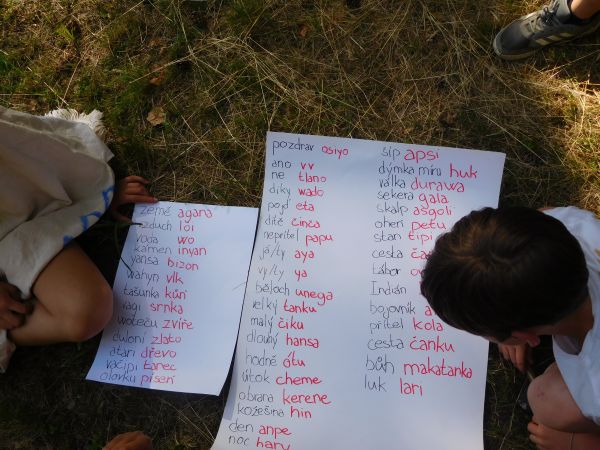 země agana
vzduch loi
voda wo
kámen inyan
yansa bizon
wahyn vlk
tašunka kůň
vagi srnka
woteču zvíře
čuloni zlato
atari dřevo
vačipi tanec
olovku píseň
pozdrav osiyo
ano vv
ne tlano
díky wado
pojď eta
dítě činča
nepřítel papu
já/ty aya
vy/ty ya
běloch unega
velký tanku
malý čiku
dlouhý hansa
hodně átu
útok cheme
obrana kerene
kožešina hin
den anpe
noc hary
šíp apsi
dýmka míru huk
válka durawa
sekera gala
skalp asgoli
oheň petu
stan tipi
cesta
tábor
Indián
bojovník
přítel kola
cesta čanku
bůh makatanka
luk lari